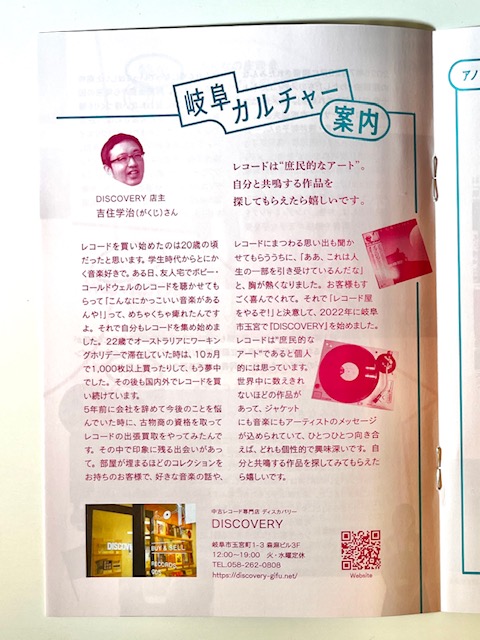 岐阜
カルチャー
案内
アノ
DISCOVERY 店主
吉住学治(がくじ)さん
レコードは“庶民的なアート”。
自分と共鳴する作品を
探してもらえたら嬉しいです。
レコードを買い始めたのは20歳の頃
だったと思います。学生時代からとにか
く音楽好きで。ある日、友人宅でボビー・
コールドウェルのレコードを聴かせても
らって「こんなにかっこいい音楽がある
んや!」って、めちゃくちゃ痺れたんです
よ。それで自分もレコードを集め始めま
した。22歳でオーストラリアにワーキン
グホリデーで滞在していた時は、10ヵ月
で1,000枚以上買ったりして、もう夢中
でした。その後も国内外でレコードを買
い続けています。
5年前に会社を辞めて今後のことを悩
んでいた時に、古物商の資格を取って
レコードの出張買取をやってみたんで
す。その中で印象に残る出会いがあっ
て。部屋が埋まるほどのコレクションを
お持ちのお客様で、好きな音楽の話や、
レコードにまつわる思い出も聞か
せてもらううちに、「ああ、これは人
生の一部を引き受けているんだな」
と、胸が熱くなりました。お客様もす
ごく喜んでくれて。それで「レコード屋
をやるぞ!」と決意して、2022年に岐阜
市玉宮で「DISCOVERY」を始めました。
レコードは“庶民的な
アート“であると個人
的には思っています。
世界中に数えきれ
ないほどの作品が
あって、ジャケット
にも音楽にもアーティストのメッセージ
が込められていて、ひとつひとつ向き合
えば、どれも個性的で興味深いです。自
分と共鳴する作品を探してみてもらえた
ら嬉しいです。
DISCOV
BUY & SELL
RECORDS
中古レコード専門店 ディスカバリー
DISCOVERY
岐阜市玉宮町1-3 森瀬ビル3F
12:00〜19:00 火・水曜定休
TEL.058-262-0808
https://discovery-gifu.net/
Website